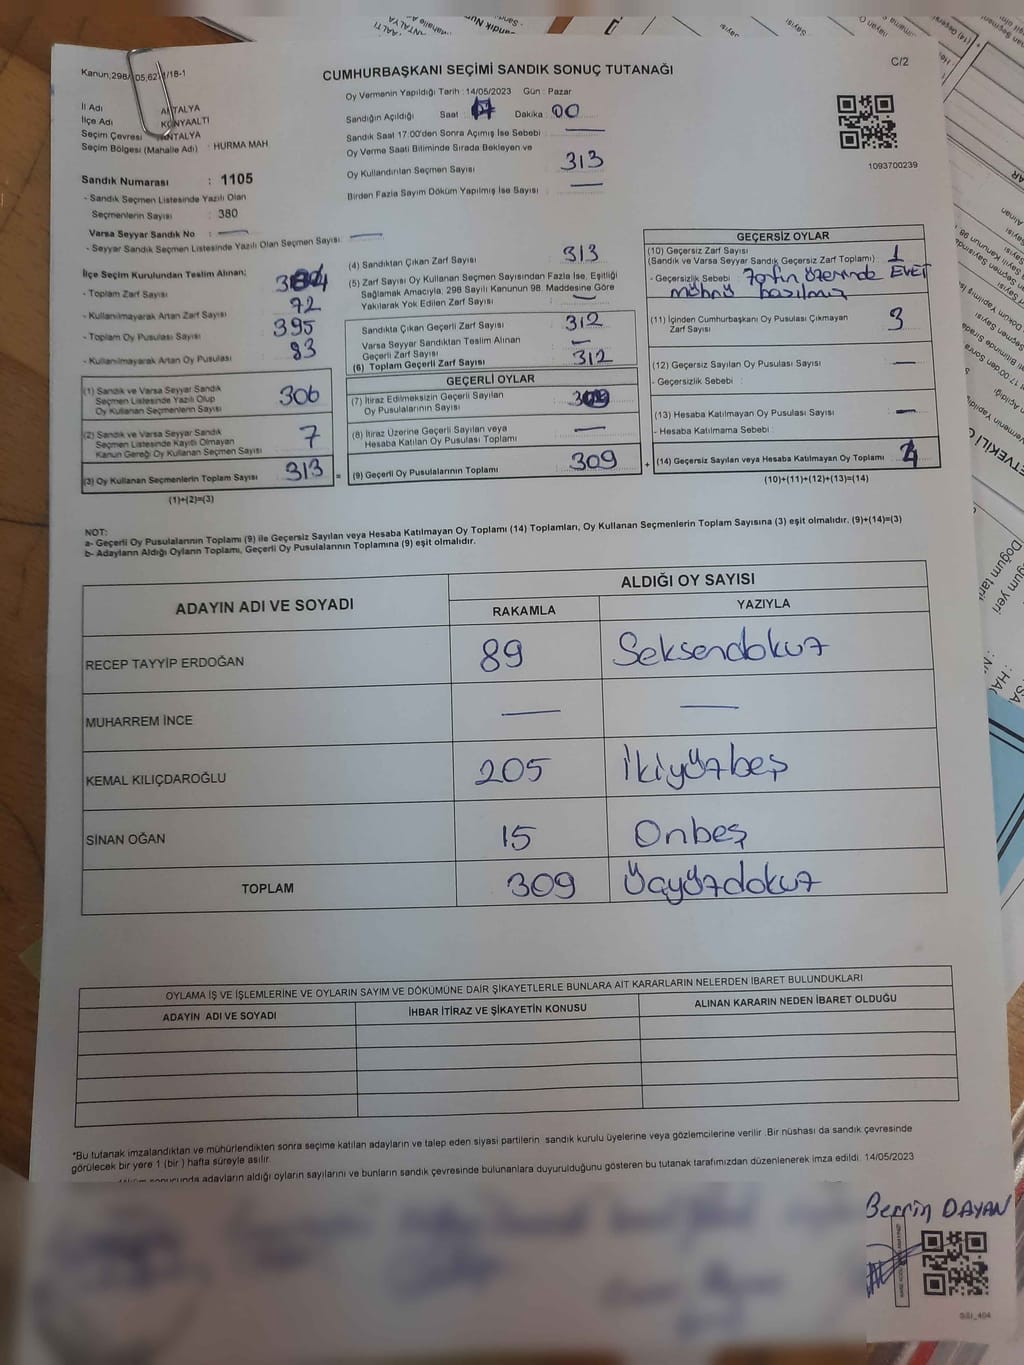 Kanun,298/
C/2
CUMHURBAŞKANI SEÇİMİ SANDIK SONUÇ TUTANAĞI
Oy Vermenin Yapıldığı Tarih : 14/05/2023 Gün : Pazar
İl Adı ANTALYA
İlçe Adı KONYAALTI
Seçim Çevresi ANTALYA
Seçim Bölgesi (Mahalle Adı) : HURMA MAH
Sandık Numarası : 1105
- Sandık Seçmen Listesinde Yazılı Olan
Seçmenlerin Sayısı : 380
Varsa Seyyar Sandık No : —
- Seyyar Sandık Seçmen Listesinde Yazılı Olan Seçmen Sayısı: —
Sandığın Açıldığı Saat : Dakika : 00
Sandık Saat 17:00'den Sonra Açımış İse Sebebi : —
Oy Verme Saati Bitiminde Sırada Bekleyen ve
Oy Kullandırılan Seçmen Sayısı 313
Birden Fazla Sayım Döküm Yapılmış İse Sayısı : —
1093700239
İlçe Seçim Kurulundan Teslim Alınan;
- Toplam Zarf Sayısı
- Kullanılmayarak Artan Zarf Sayısı 72
- Toplam Oy Pusulası Sayısı 395
- Kullanılmayarak Artan Oy Pusulası 83
(1) Sandık ve Varsa Seyyar Sandık
Seçmen Listesinde Yazılı Olup
Oy Kullanan Seçmenlerin Sayısı 306
(2) Sandık ve Varsa Seyyar Sandık
Seçmen Listesinde Kayıtlı Olmayan
Kanun Gereği Oy Kullanan Seçmen Sayısı 7
(3) Oy Kullanan Seçmenlerin Toplam Sayısı 313 =
(1)+(2)=(3)
(4) Sandıktan Çıkan Zarf Sayısı 313
(5) Zarf Sayısı Oy Kullanan Seçmen Sayısından Fazla İse, Eşitliği
Sağlamak Amacıyla, 298 Sayılı Kanunun 98. Maddesine Göre
Yakılarak Yok Edilen Zarf Sayısı : —
Sandıkta Çıkan Geçerli Zarf Sayısı 312
Varsa Seyyar Sandıktan Teslim Alınan
Geçerli Zarf Sayısı —
(6) Toplam Geçerli Zarf Sayısı 312
GEÇERLİ OYLAR
(7) İtiraz Edilmeksizin Geçerli Sayılan
Oy Pusulalarının Sayısı
(8) İtiraz Üzerine Geçerli Sayılan veya
Hesaba Katılan Oy Pusulası Toplamı —
(9) Geçerli Oy Pusulalarının Toplamı 309 +
GEÇERSİZ OYLAR
(10) Geçersiz Zarf Sayısı
(Sandık ve Varsa Seyyar Sandık Geçersiz Zarf Toplamı) : 1
- Geçersizlik Sebebi : Zarfın üzerinde EVET
mührü basılmış
(11) İçinden Cumhurbaşkanı Oy Pusulası Çıkmayan
Zarf Sayısı 3
(12) Geçersiz Sayılan Oy Pusulası Sayısı —
- Geçersizlik Sebebi :
(13) Hesaba Katılmayan Oy Pusulası Sayısı —
- Hesaba Katılmama Sebebi :
(14) Geçersiz Sayılan veya Hesaba Katılmayan Oy Toplamı 4
(10)+(11)+(12)+(13)=(14)
NOT:
a- Geçerli Oy Pusulalarının Toplamı (9) ile Geçersiz Sayılan veya Hesaba Katılmayan Oy Toplamı (14) Toplamları, Oy Kullanan Seçmenlerin Toplam Sayısına (3) eşit olmalıdır. (9)+(14)=(3)
b- Adayların Aldığı Oyların Toplamı, Geçerli Oy Pusulalarının Toplamına (9) eşit olmalıdır.
ADAYIN ADI VE SOYADI ALDIĞI OY SAYISI
RAKAMLA YAZIYLA
RECEP TAYYİP ERDOĞAN 89 Seksendokuz
MUHARREM İNCE — —
KEMAL KILIÇDAROĞLU 205 İkiyüzbeş
SİNAN OĞAN 15 Onbeş
TOPLAM 309 Üçyüzdokuz
OYLAMA İŞ VE İŞLEMLERİNE VE OYLARIN SAYIM VE DÖKÜMÜNE DAİR ŞİKAYETLERLE BUNLARA AİT KARARLARIN NELERDEN İBARET BULUNDUKLARI
ADAYIN ADI VE SOYADI İHBAR İTİRAZ VE ŞİKAYETİN KONUSU ALINAN KARARIN NEDEN İBARET OLDUĞU
*Bu tutanak imzalandıktan ve mühürlendikten sonra seçime katılan adayların ve talep eden siyasi partilerin sandık kurulu üyelerine veya gözlemcilerine verilir .Bir nüshası da sandık çevresinde
görülecek bir yere 1 (bir ) hafta süreyle asılır.
sonucunda adayların aldığı oyların sayılarını ve bunların sandık çevresinde bulunanlara duyurulduğunu gösteren bu tutanak tarafımızdan düzenlenerek imza edildi. 14/05/2023
Berrin DAYAN